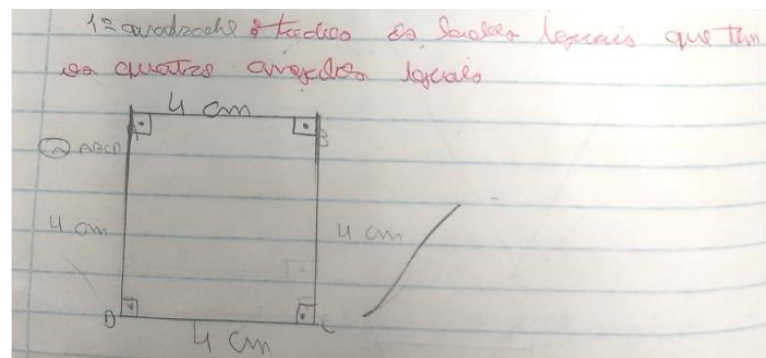 1º quadrado : todos os lados Iguais que têm
os quatro angulos Iguais
4 cm
A B
ABCD
4 cm 4 cm
D C
4 cm